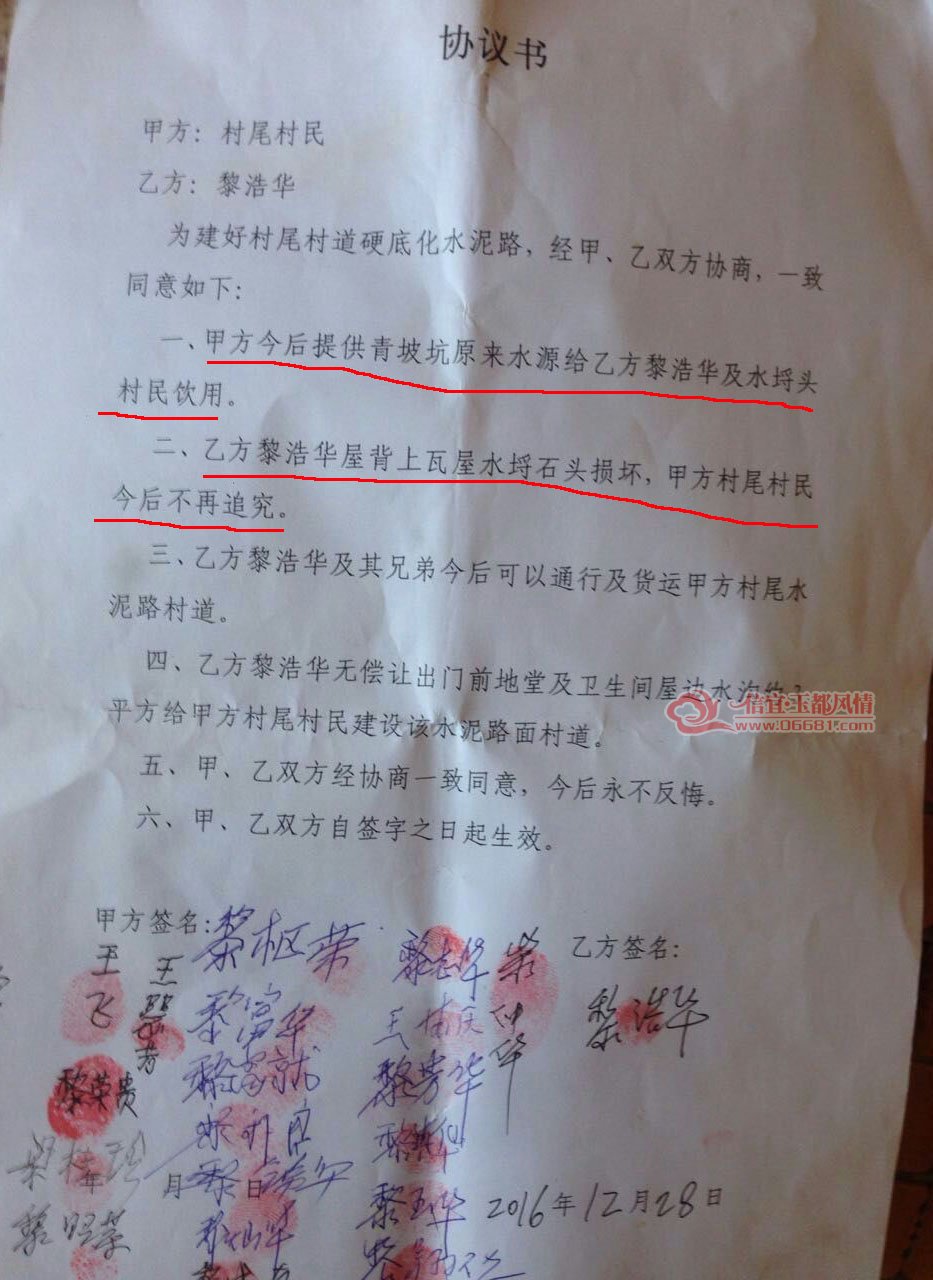 协议书
甲方：村尾村民
乙方：黎浩华
为建好村尾村道硬底化水泥路，经甲、乙双方协商，一致
同意如下：
一、甲方今后提供青坡坑原来水源给乙方黎浩华及水埒头
村民饮用。
二、乙方黎浩华屋背上瓦屋水埒石头损坏，甲方村尾村民
今后不再追究。
三、乙方黎浩华及其兄弟今后可以通行及货运甲方村尾水
泥路村道。
四、乙方黎浩华无偿让出门前地堂及卫生间屋边水沟约
平方给甲方村尾村民建设该水泥路面村道。
信宜玉都风情
www.06681.com
五、甲、乙双方经协商一致同意，今后永不反悔。
六、甲、乙双方自签字之日起生效。
甲方签名：
乙方签名：
王飞
黎枢荣
黎志华
黎富华
黎浩华
黎荣贵
黎芳华
年 月 日
黎玉华
2016年12月28日